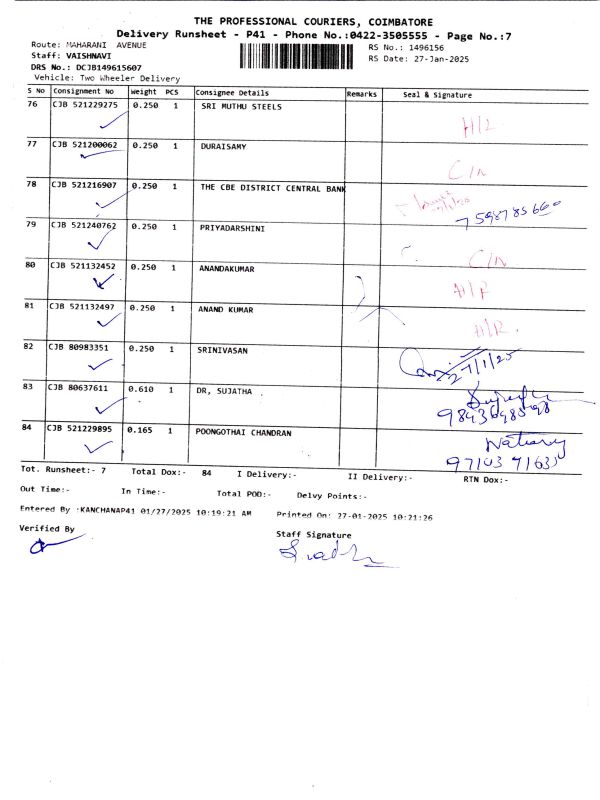 THE PROFESSIONAL COURIERS, COIMBATORE
Delivery Runsheet - P41 - Phone No.:0422-3505555 - Page No.:7
Route: MAHARANI AVENUE RS No.: 1496156
Staff: VAISHNAVI RS Date: 27-Jan-2025
DRS No.: DCJB149615607
Vehicle: Two Wheeler Delivery
S No Consignment No Weight PCS Consignee Details Remarks Seal & Signature
76 CJB 521229275 0.250 1 SRI MUTHU STEELS
77 CJB 521200062 0.250 1 DURAISAMY C/N
78 CJB 521216907 0.250 1 THE CBE DISTRICT CENTRAL BANK 7598785660
79 CJB 521240762 0.250 1 PRIYADARSHINI C/N
80 CJB 521132452 0.250 1 ANANDAKUMAR
81 CJB 521132497 0.250 1 ANAND KUMAR
82 CJB 80983351 0.250 1 SRINIVASAN 27/1/25
83 CJB 80637611 0.610 1 DR, SUJATHA
84 CJB 521229895 0.165 1 POONGOTHAI CHANDRAN 9710371635
Tot. Runsheet:- 7 Total Dox:- 84 I Delivery:- II Delivery:- RTN Dox:-
Out Time:- In Time:- Total POD:- Delvy Points:-
Entered By :KANCHANAP41 01/27/2025 10:19:21 AM Printed On: 27-01-2025 10:21:26
Verified By
Staff Signature